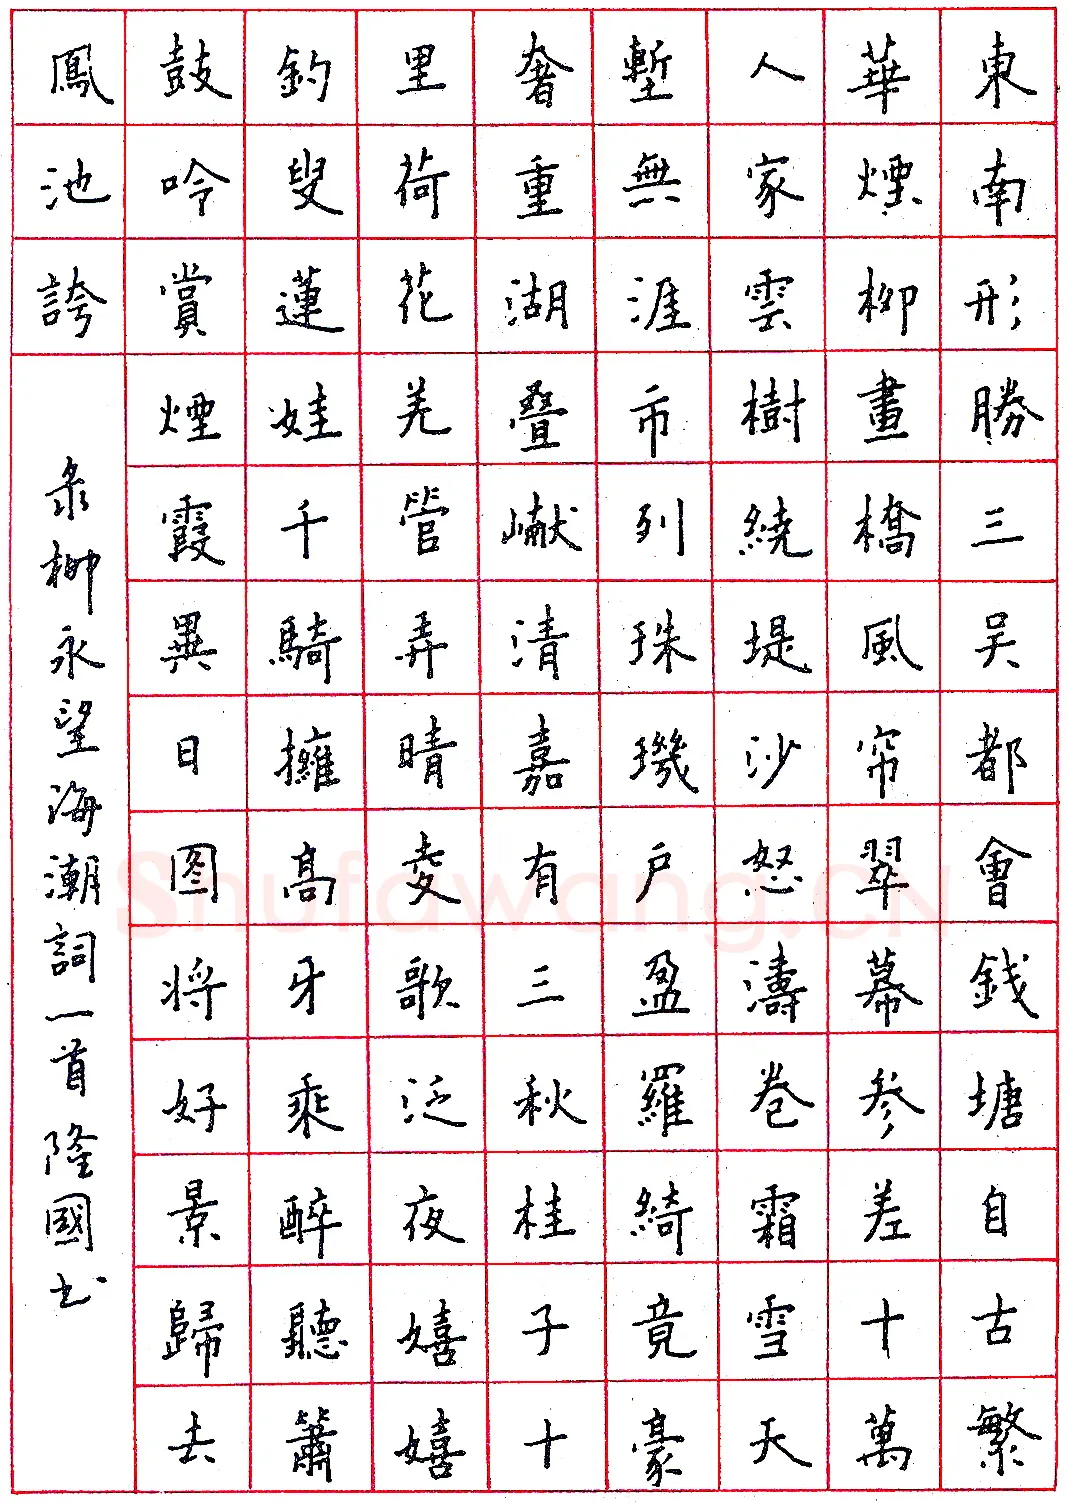 東南形勝三吳都會錢塘自古繁
華煙柳畫橋風帘翠幕參差十萬
人家雲樹繞堤沙怒濤卷霜雪天
塹無涯市列珠璣戶盈羅綺竟豪
奢重湖疊巘清嘉有三秋桂子十
里荷花羌管弄晴夌歌泛夜嬉嬉
釣叟蓮娃千騎擁高牙乘醉聽簫
鼓吟賞煙霞異日图将好景歸去
鳳池誇
录柳永望海潮詞一首隆國书
Shufawang.CN